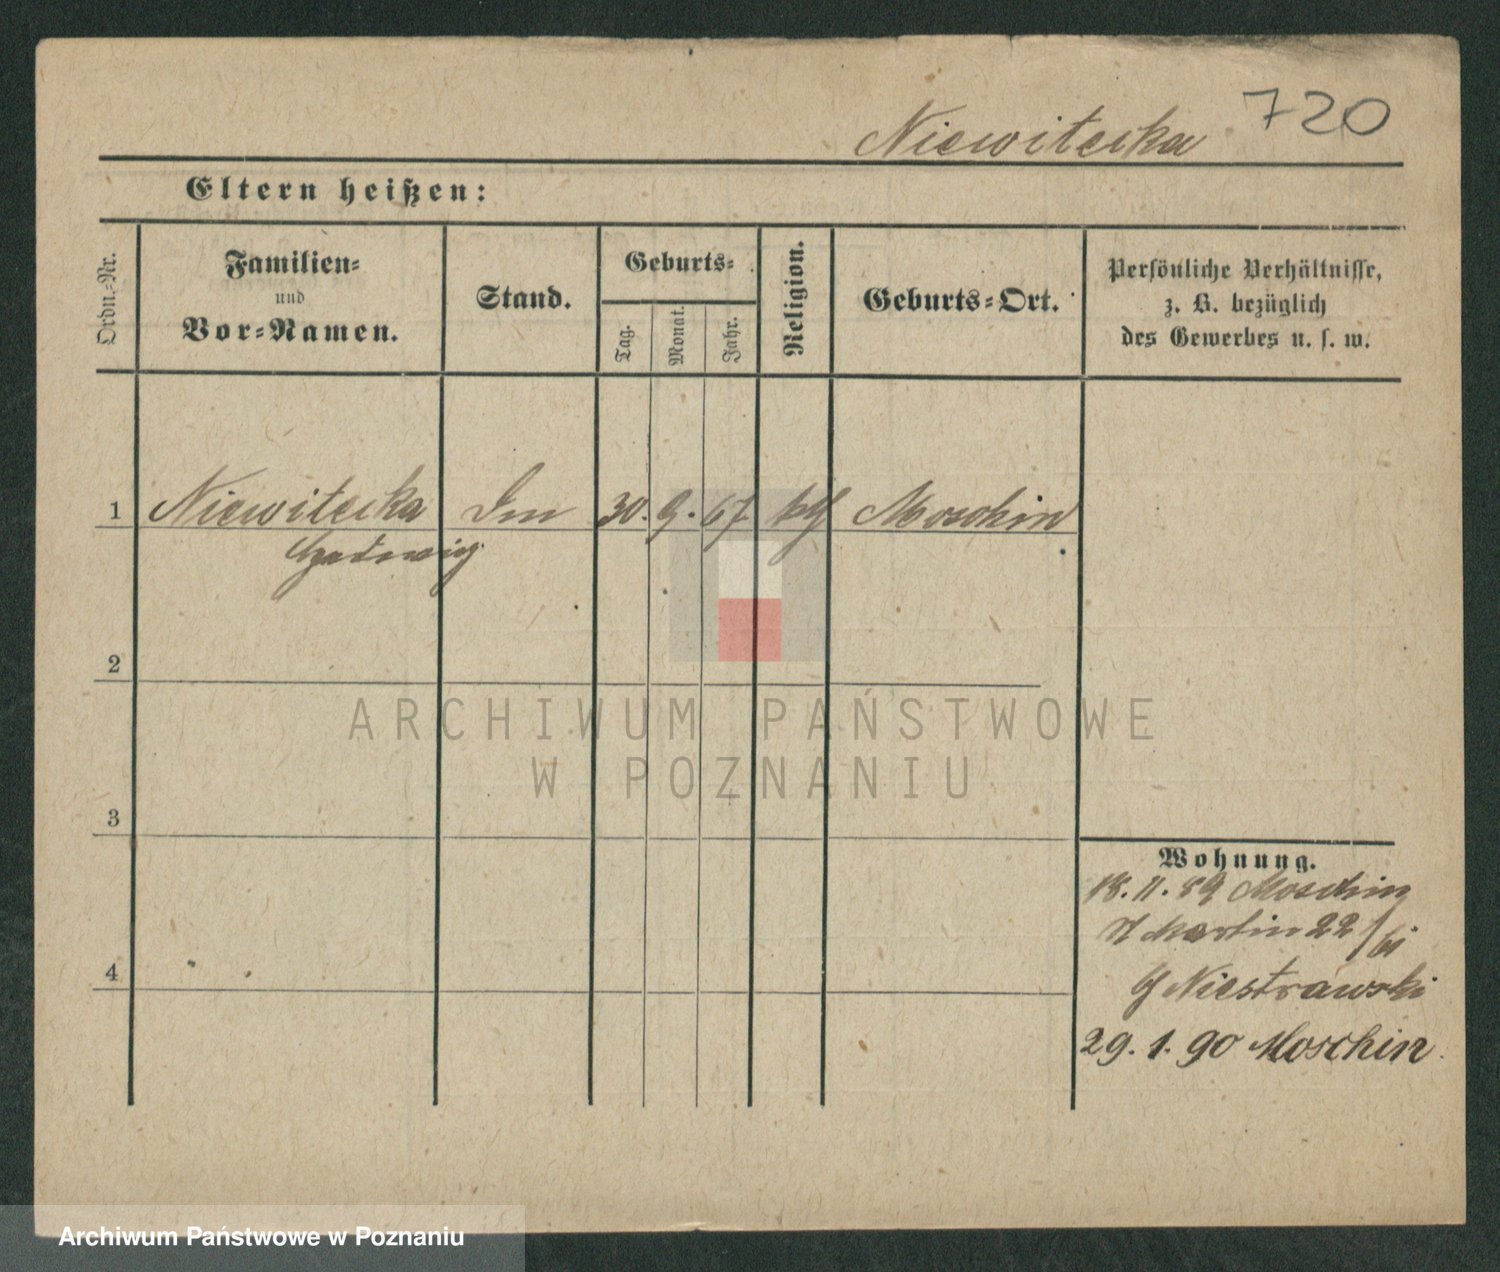 Niewitecka 720
Eltern heißen:
Ordn.-Nr.
Familien-
und
Vor-Namen.
Stand.
Geburts-
Tag.
Monat.
Jahr.
Religion.
Geburts-Ort.
Persönliche Verhältnisse,
z. B. bezüglich
des Gewerbes u. s. w.
1 Niewitecka 30. 9. 67 Moschin
Hedwig
2
3
4
Wohnung.
18. 11. 89 Moschin
Martin 22
Niestrawski
29. 1. 90 Moschin
ARCHIWUM PAŃSTWOWE
W POZNANIU
Archiwum Państwowe w Poznaniu